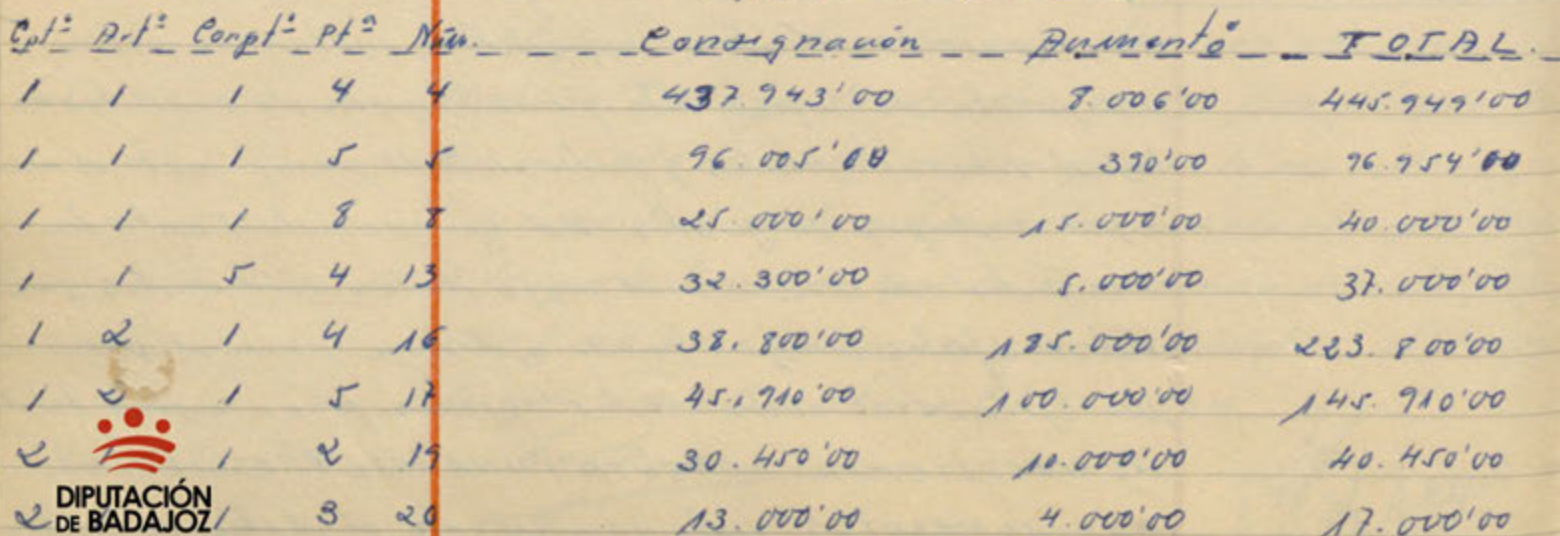 Cptº Artº Conptº Ptª Núm. Consignación Aumento TOTAL.
1 1 1 4 4 437.943'00 8.006'00 445.949'00
1 1 1 5 5 96.005'00 390'00 96.954'00
1 1 1 8 8 25.000'00 15.000'00 40.000'00
1 1 5 4 13 32.300'00 5.000'00 37.000'00
1 2 1 4 16 38.800'00 185.000'00 223.800'00
1 2 1 5 17 45.910'00 100.000'00 145.910'00
2 1 2 19 30.450'00 10.000'00 40.450'00
2 1 3 20 13.000'00 4.000'00 17.000'00
DIPUTACIÓN
DE BADAJOZ